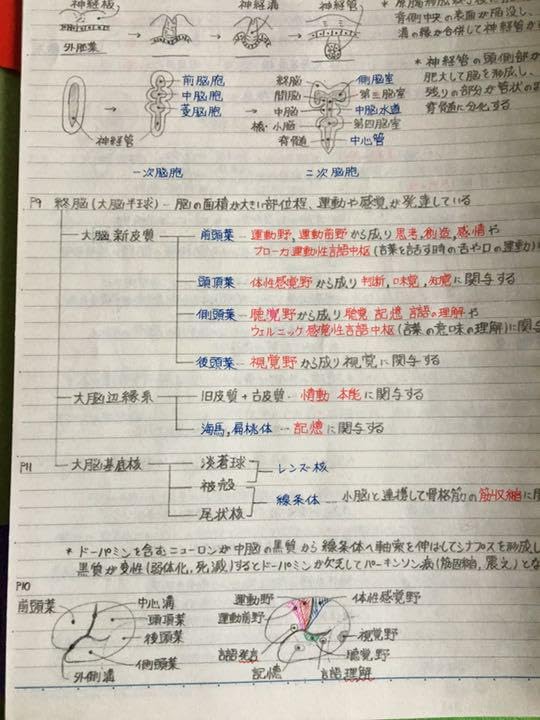 神経板 神経溝 神経管
外胚葉
背側中央の表面が陥没し、
溝の縁が合併して神経管が
* 神経管の頭側部が
肥大して脳を形成し、
残りの部分が管状の
脊髄に分化する
神経管
前脳胞
中脳胞
菱脳胞
一次脳胞
終脳 側脳室
間脳 第三脳室
中脳 中脳水道
橋・小脳 第四脳室
脊髄 中心管
二次脳胞
P9 終脳(大脳半球) - 脳の面積が大きい部位程、運動や感覚が発達している
大脳新皮質 前頭葉 - 運動野,運動前野から成り 思考,創造,感情や
ブローカ運動性言語中枢(言葉を話す時の舌や口の運動)
頭頂葉 - 体性感覚野から成り 判断,味覚,知覚に関与する
側頭葉 - 聴覚野から成り 聴覚 記憶 言語の理解や
ウェルニッケ感覚性言語中枢(言葉の意味の理解)に関与
後頭葉 - 視覚野から成り視覚に関与する
大脳辺縁系 旧皮質+古皮質 - 情動 本能に関与する
海馬,扁桃体 - 記憶に関与する
P11 大脳基底核 淡蒼球
レンズ核
被殻
線条体 - 小脳と連携して骨格筋の筋収縮に
尾状核
* ドーパミンを含むニューロンが中脳の黒質から線条体へ軸索を伸ばしてシナプスを形成し
黒質が変性(弱体化,死滅)するとドーパミンが欠乏してパーキンソン病(筋固縮,震え)とな
P10
前頭葉 中心溝
頭頂葉
後頭葉
側頭葉
外側溝
運動野 体性感覚野
運動前野
視覚野
言語発言 聴覚野
記憶 言語理解